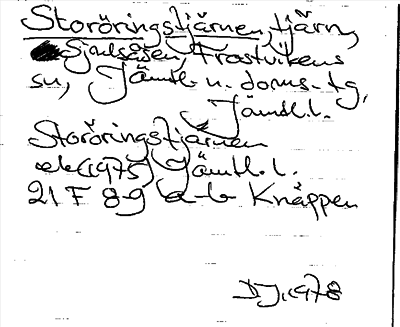 Storöringstjärnen, tjärn,
Sjoulsåsen, Frostvikens
sn, Jämtl. n. doms. tg,
Jämtl. l.
Storöringstjärnen
ek (1975) Jämtl. l.
21 F 8-9 a-b Knäppen
DJ. 1978